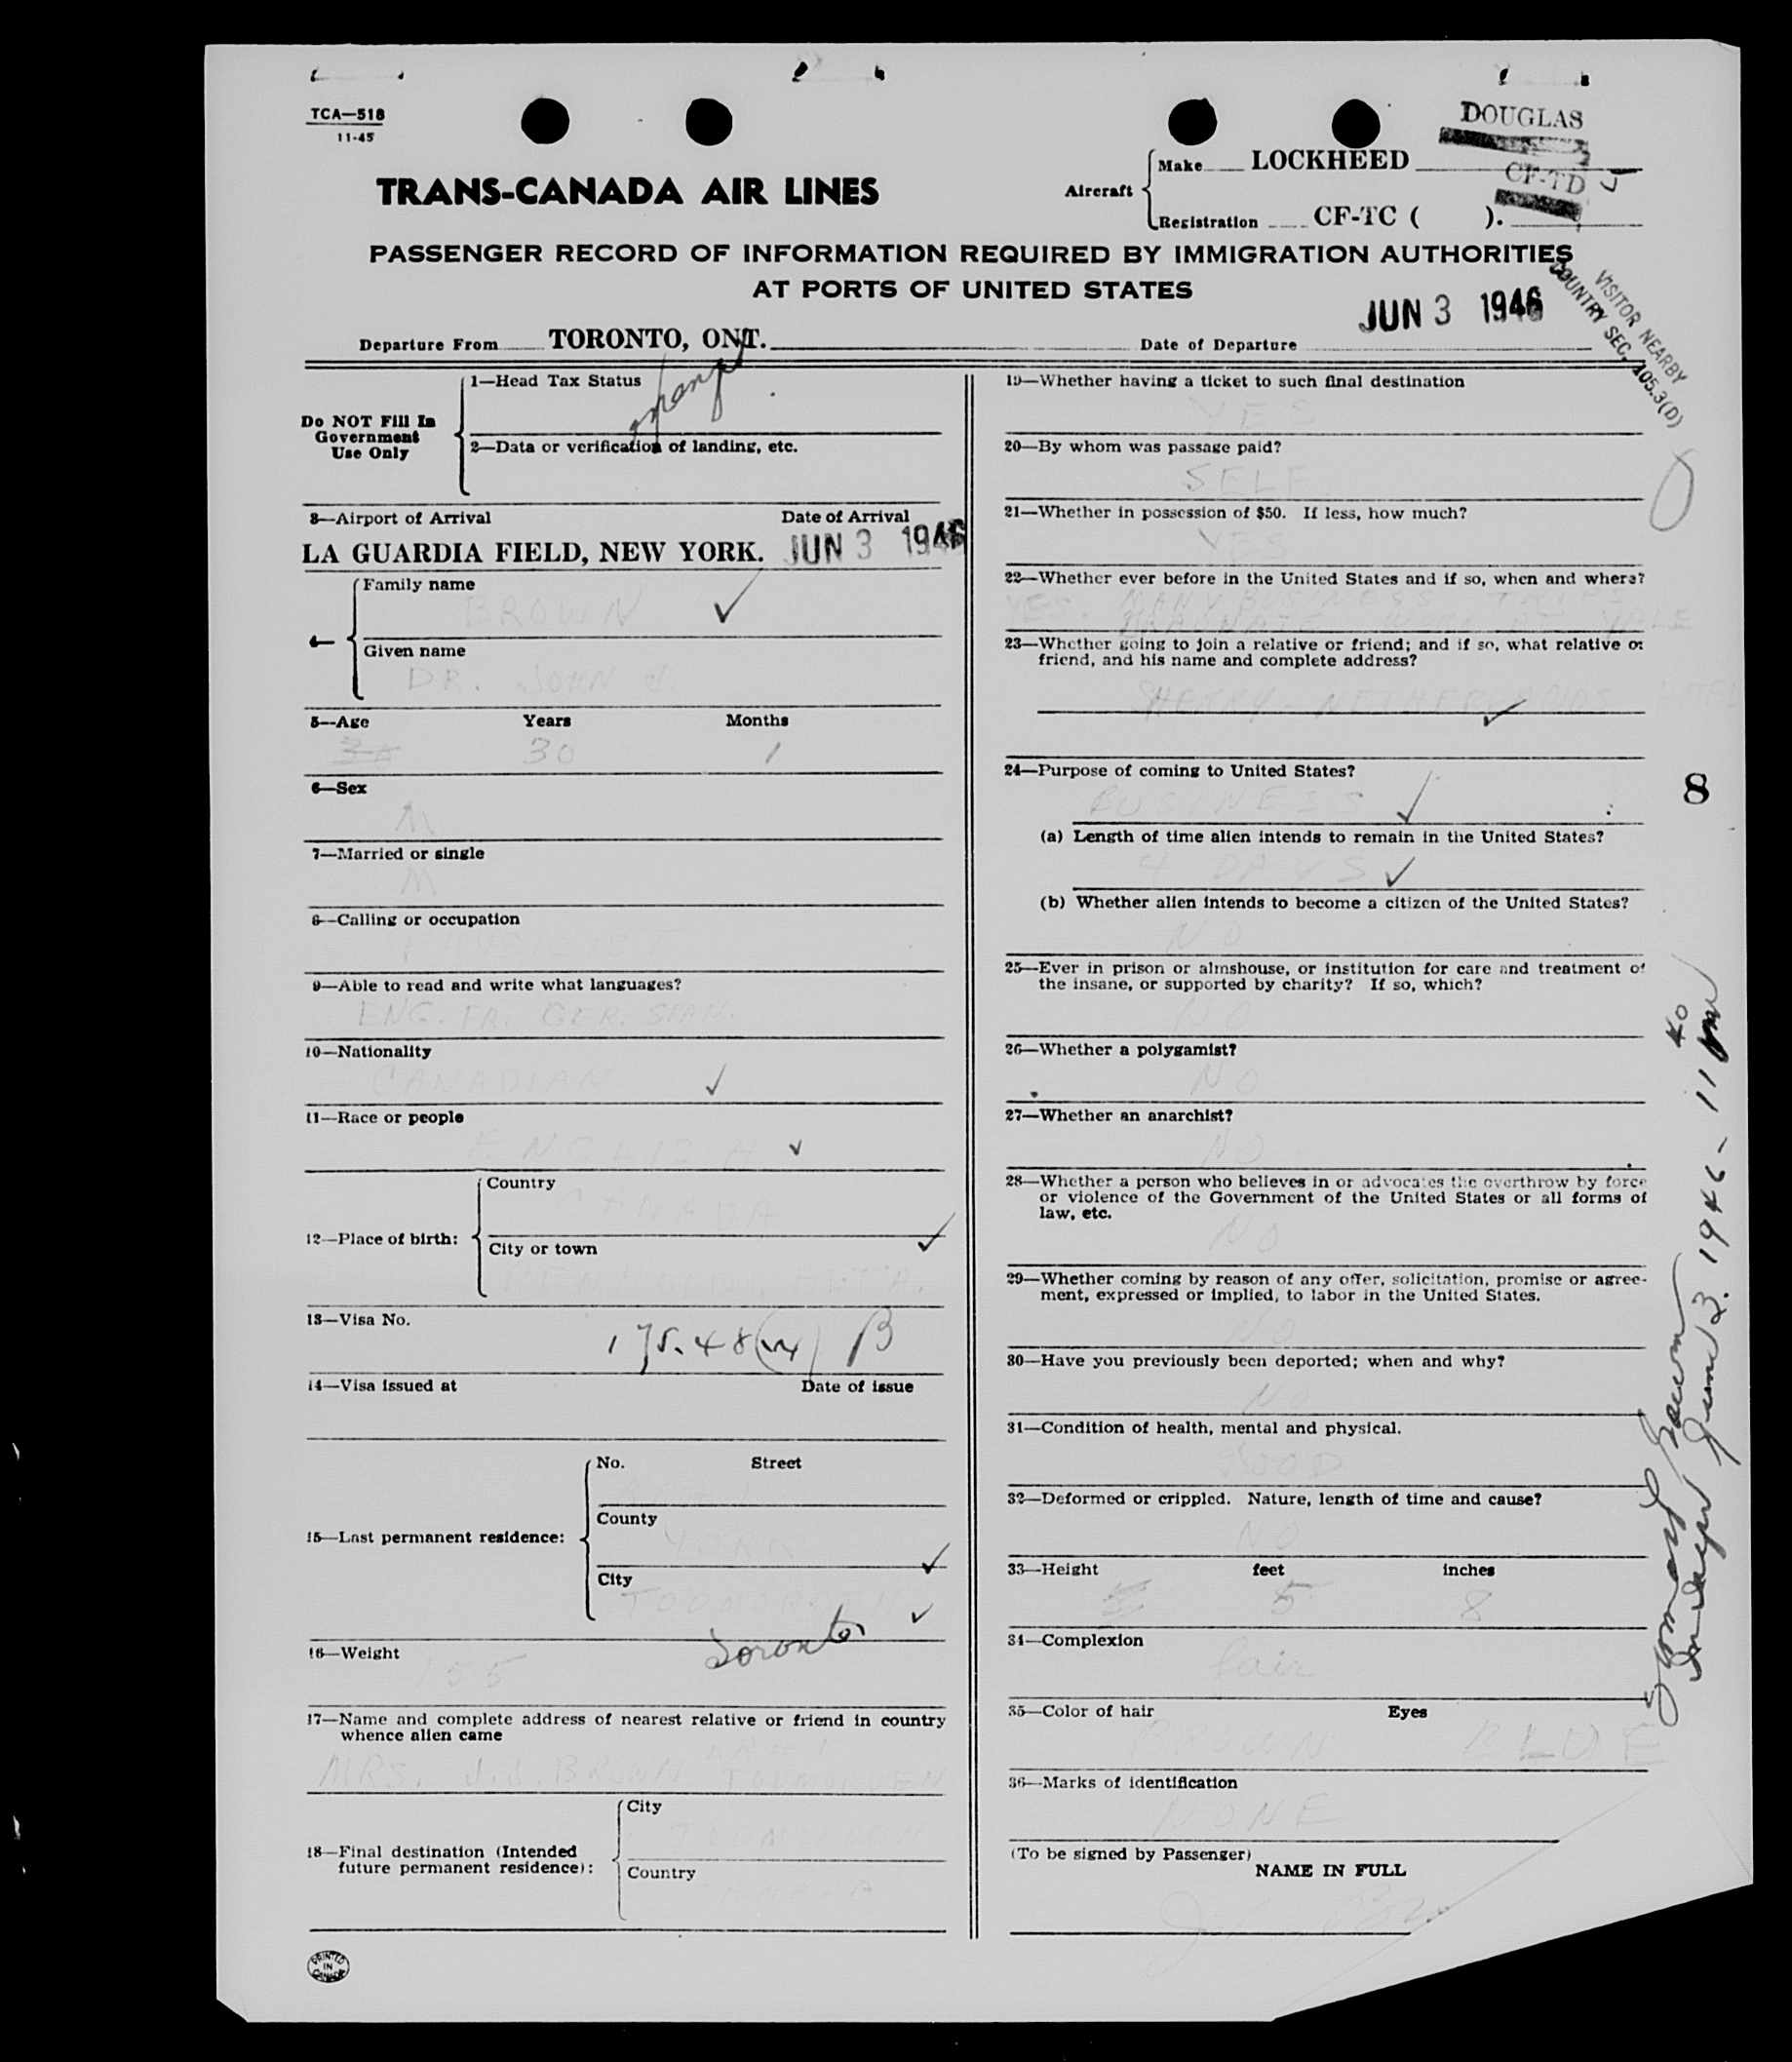 TCA—518
11-45
DOUGLAS
TRANS-CANADA AIR LINES
Aircraft
Make LOCKHEED
CF-TD J
Registration CF-TC ( ).
PASSENGER RECORD OF INFORMATION REQUIRED BY IMMIGRATION AUTHORITIES
AT PORTS OF UNITED STATES
VISITOR NEARBY
COUNTRY SEC. 105.3(D)
Departure From TORONTO, ONT.
Date of Departure JUN 3 1946
Do NOT Fill In
Government
Use Only
1—Head Tax Status
2—Data or verification of landing, etc.
3—Airport of Arrival Date of Arrival
LA GUARDIA FIELD, NEW YORK. JUN 3 1946
4—
Family name
BROWN
Given name
DR. JOHN J.
5—Age Years Months
30 1
6—Sex
M
7—Married or single
M
8—Calling or occupation
9—Able to read and write what languages?
ENG. FR. GER. SPAN.
10—Nationality
CANADIAN
11—Race or people
ENGLISH
12—Place of birth:
Country
CANADA
City or town
13—Visa No.
175.48(w) B
14—Visa issued at Date of issue
15—Last permanent residence:
No. Street
County
YORK
City
Toronto
16—Weight
155
17—Name and complete address of nearest relative or friend in country
whence alien came
MRS. J.J. BROWN
18—Final destination (Intended
future permanent residence):
City
Country
PRINTED
IN
CANADA
19—Whether having a ticket to such final destination
YES
20—By whom was passage paid?
SELF
21—Whether in possession of $50. If less, how much?
YES
22—Whether ever before in the United States and if so, when and where?
YES. MANY BUSINESS TRIPS
WORK AT YALE
23—Whether going to join a relative or friend; and if so, what relative or
friend, and his name and complete address?
SHERRY-NETHERLANDS HOTEL
24—Purpose of coming to United States?
BUSINESS
(a) Length of time alien intends to remain in the United States?
4 DAYS
(b) Whether alien intends to become a citizen of the United States?
NO
25—Ever in prison or almshouse, or institution for care and treatment of
the insane, or supported by charity? If so, which?
NO
26—Whether a polygamist?
NO
27—Whether an anarchist?
NO
28—Whether a person who believes in or advocates the overthrow by force
or violence of the Government of the United States or all forms of
law, etc.
NO
29—Whether coming by reason of any offer, solicitation, promise or agree-
ment, expressed or implied, to labor in the United States.
NO
30—Have you previously been deported; when and why?
NO
31—Condition of health, mental and physical.
GOOD
32—Deformed or crippled. Nature, length of time and cause?
NO
33—Height feet inches
5 8
34—Complexion
fair
35—Color of hair Eyes
BROWN BLUE
36—Marks of identification
NONE
(To be signed by Passenger)
NAME IN FULL
8
June 3. 1946 - 11 40